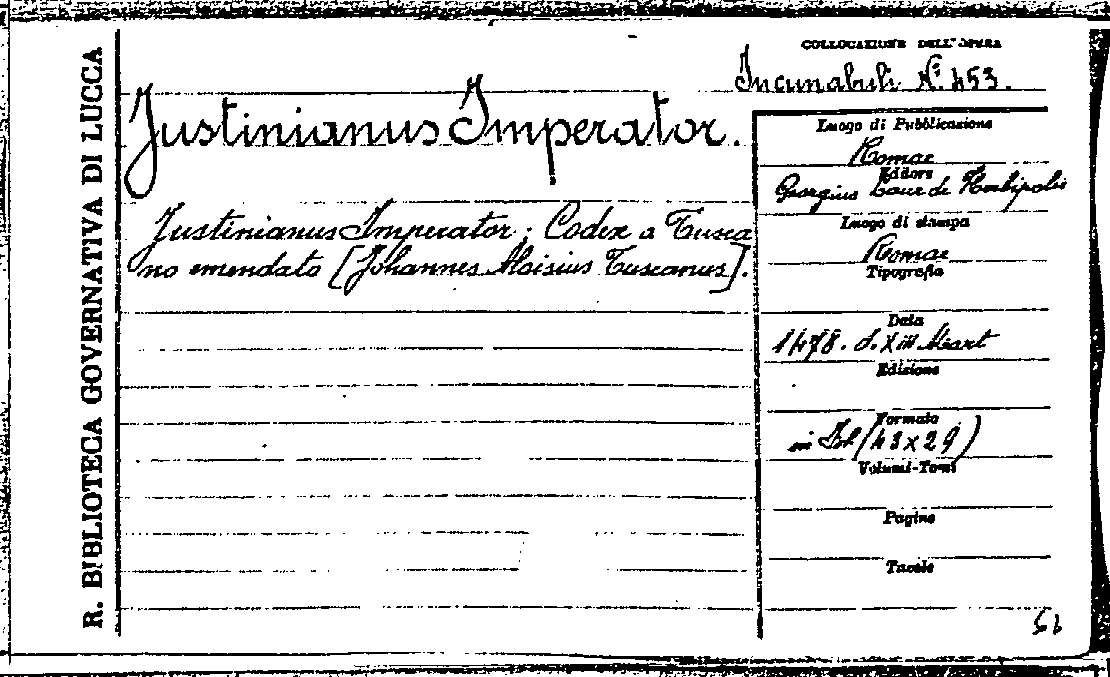 R. BIBLIOTECA GOVERNATIVA DI LUCCA
COLLOCAZIONE DELL'OPERA
Incunabuli N.º 453.
Justinianus Imperator.
Justinianus Imperator; Codex a Tusca
no emendato [Johannes Aloisius Tuscanus].
Luogo di Pubblicazione
Romae
Editore
Georgius Laur de Herbipolis
Luogo di stampa
Romae
Tipografia
Data
1478. d. XIII Mart
Edizione
Formato
in fol (43x29)
Volumi-Tomi
Pagine
Tavole